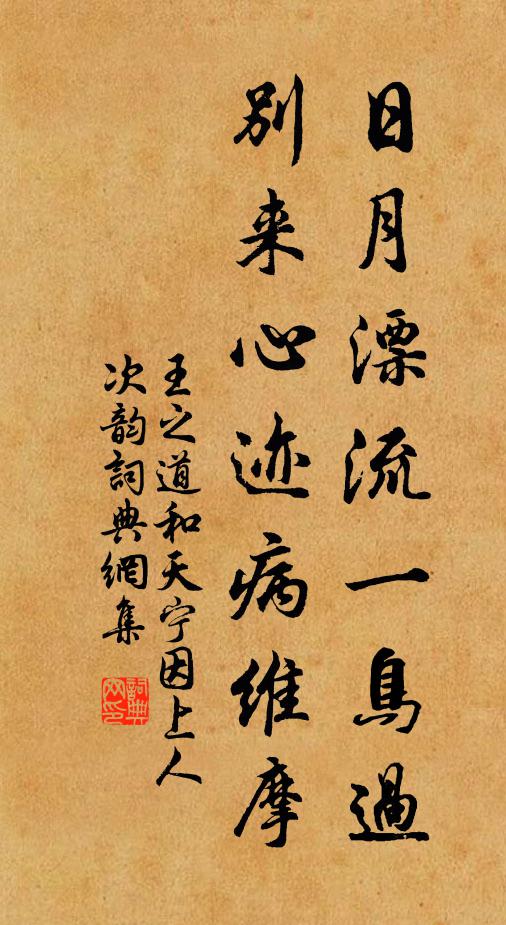 日月漂流一鳥過
別来心迹病維摩
王之道和天宁因上人
次韵詞典網集
詞典网印